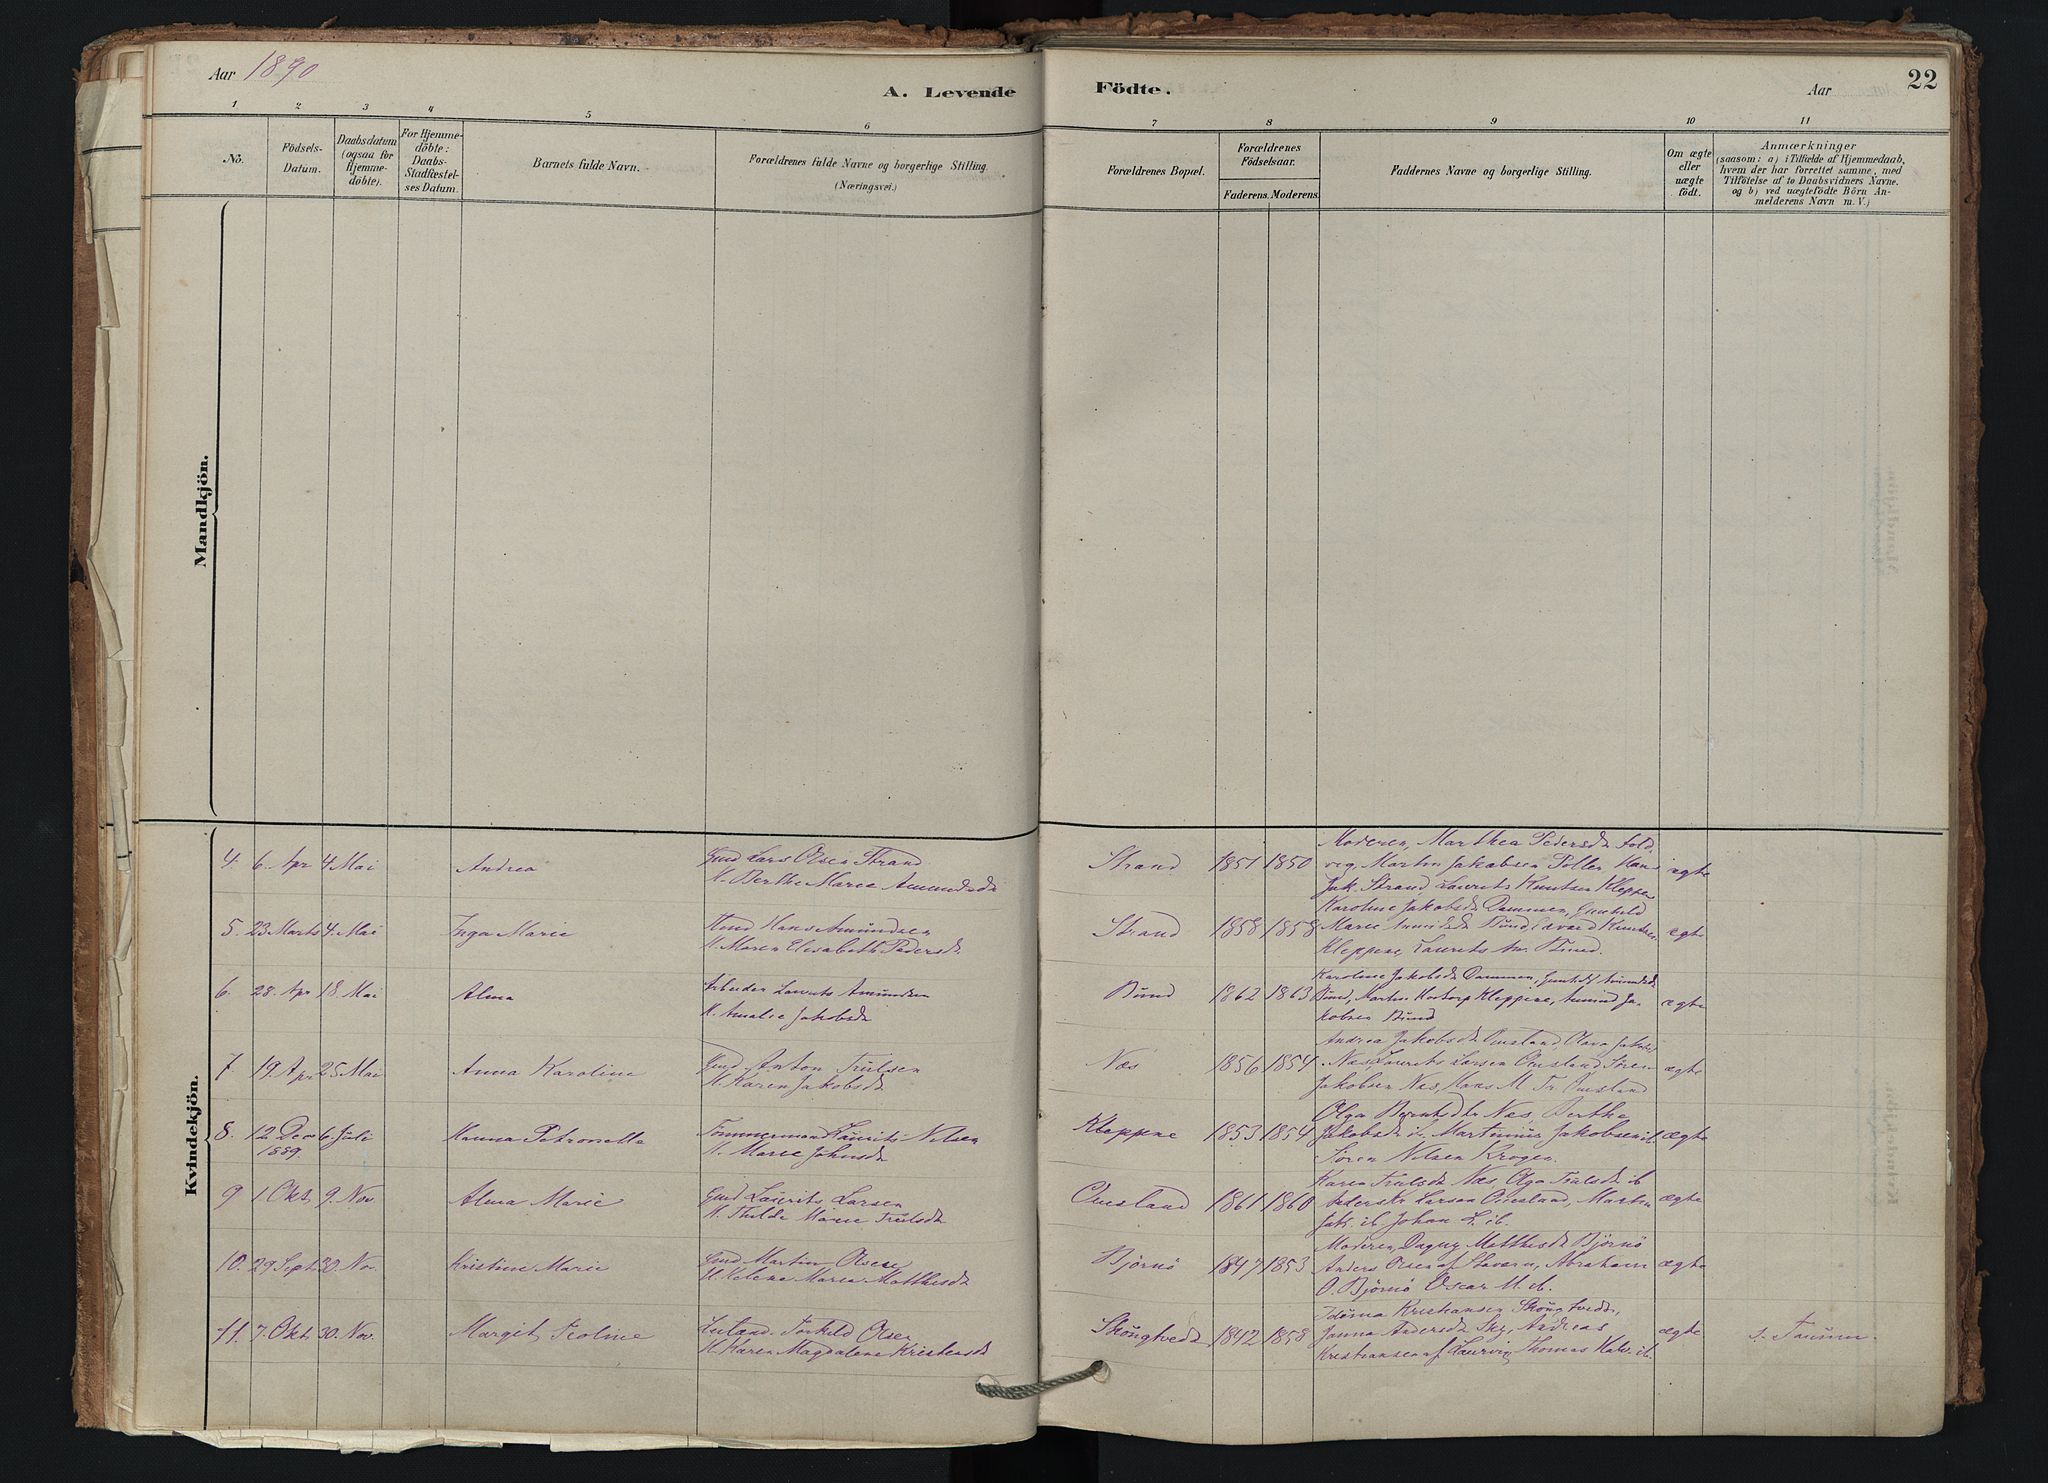 Aar 1890
A. Levende Födte.
Aar
22
1 2 3 4 5 6 7 8 9 10 11
No.
Födsels-Datum.
Daabsdatum (ogsaa for Hjemme-döbte).
For Hjemme-döbte: Daabs-Stadfæstel-ses Datum.
Barnets fulde Navn.
Forældrenes fulde Navne og borgerlige Stilling.
(Næringsvei.)
Forældrenes Bopæl.
Forældrenes Födselsaar.
Faderens. Moderens.
Faddernes Navne og borgerlige Stilling.
Om ægte eller uægte födt.
Anmærkninger
(saasom: a) i Tilfælde af Hjemmedaab,
hvem der har forrettet samme, med
Tilföielse af to Daabsvidners Navne.
og b) ved uægtefödte Börn An-
melderens Navn m. V.)
Mandkjön.
Kvindekjön.
4. 6. Apr 4 Mai Andrea
Gmd Lars Olsen Strand
H. Berthe Marie Amundsdr
Strand 1851 1850
Moderen, Marthea Pedersdr Fold
vig, Martin Jakobsen Poller Hans
Jak. Strand Laurits Knutsen Kleppen
ægte
5. 23 Marts 4. Mai Inga Marie
Hmd Hans Amundsen
H. Maren Elisabeth Pedersdr
Strand 1858 1858
Karoline Jakobsdr Dammen, Gunhild
Marie Amundsdr Bund Edvard Knutsen
Kleppene, Laurits Am. Bund
ægte
6. 28. Apr 18. Mai Alma
Arbeider Laurits Amundsen
H. Amalie Jakobsdr
Bund 1862 1863
Karoline Jakobsdr Dammen, Gunhild Amundsdr
Bund, Martin Kleppene, Amund Ja-
kobsen Bund
ægte
7 19. Apr 25 Mai Anna Karoline
Gmd Anton Trulsen
H. Karen Jakobsdr
Næs 1856 1854
Andrea Jakobsdr Omsland Olava Jakobs
Næs, Laurits Larsen Omsland Sören
Jakobsen Næs, Hans M. Tr. Omsland
ægte
8. 12 Dec 1889. 6. Juli Hanna Petronelle
Tömmermand Laurits Nilsen
H. Marie Johnsdr
Kleppene 1853 1854
Olga Berntsdr Næs, Berthe
Jakobsdr ib. Martinius Jakobsen ib
Sören Nilsen Krogen.
ægte
9 1. Okt 9. Nov. Alma Marie
Gmd Laurits Larsen
H. Thilde Marie Trulsdr
Omsland 1861 1860
Karen Trulsdr Næs, Olga Trulsdr ib
Anders Larsen Omsland, Martin
Jak. ib. Johan L. ib.
ægte
10. 29 Sept 30. Nov. Kristine Marie
Gmd Martin Olsen
H. Helene Marie Matthisdr
Björnö 1847 1853
Moderen, Dagny Matthisdr Björnö
Anders Olsen af Stavern, Abraham
O. Björnö Oscar M. ib.
ægte
11. 7. Okt 30. Nov. Margit Teoline
Torkild Olsen
H. Karen Magdalene Kristensdr
Skougtvedt 1842 1858
Kristiansen Skougtvedt,
Janna Andersdr Sky, Andreas
Kristiansen af Laurvig Thomas Halv. ib.
ægte